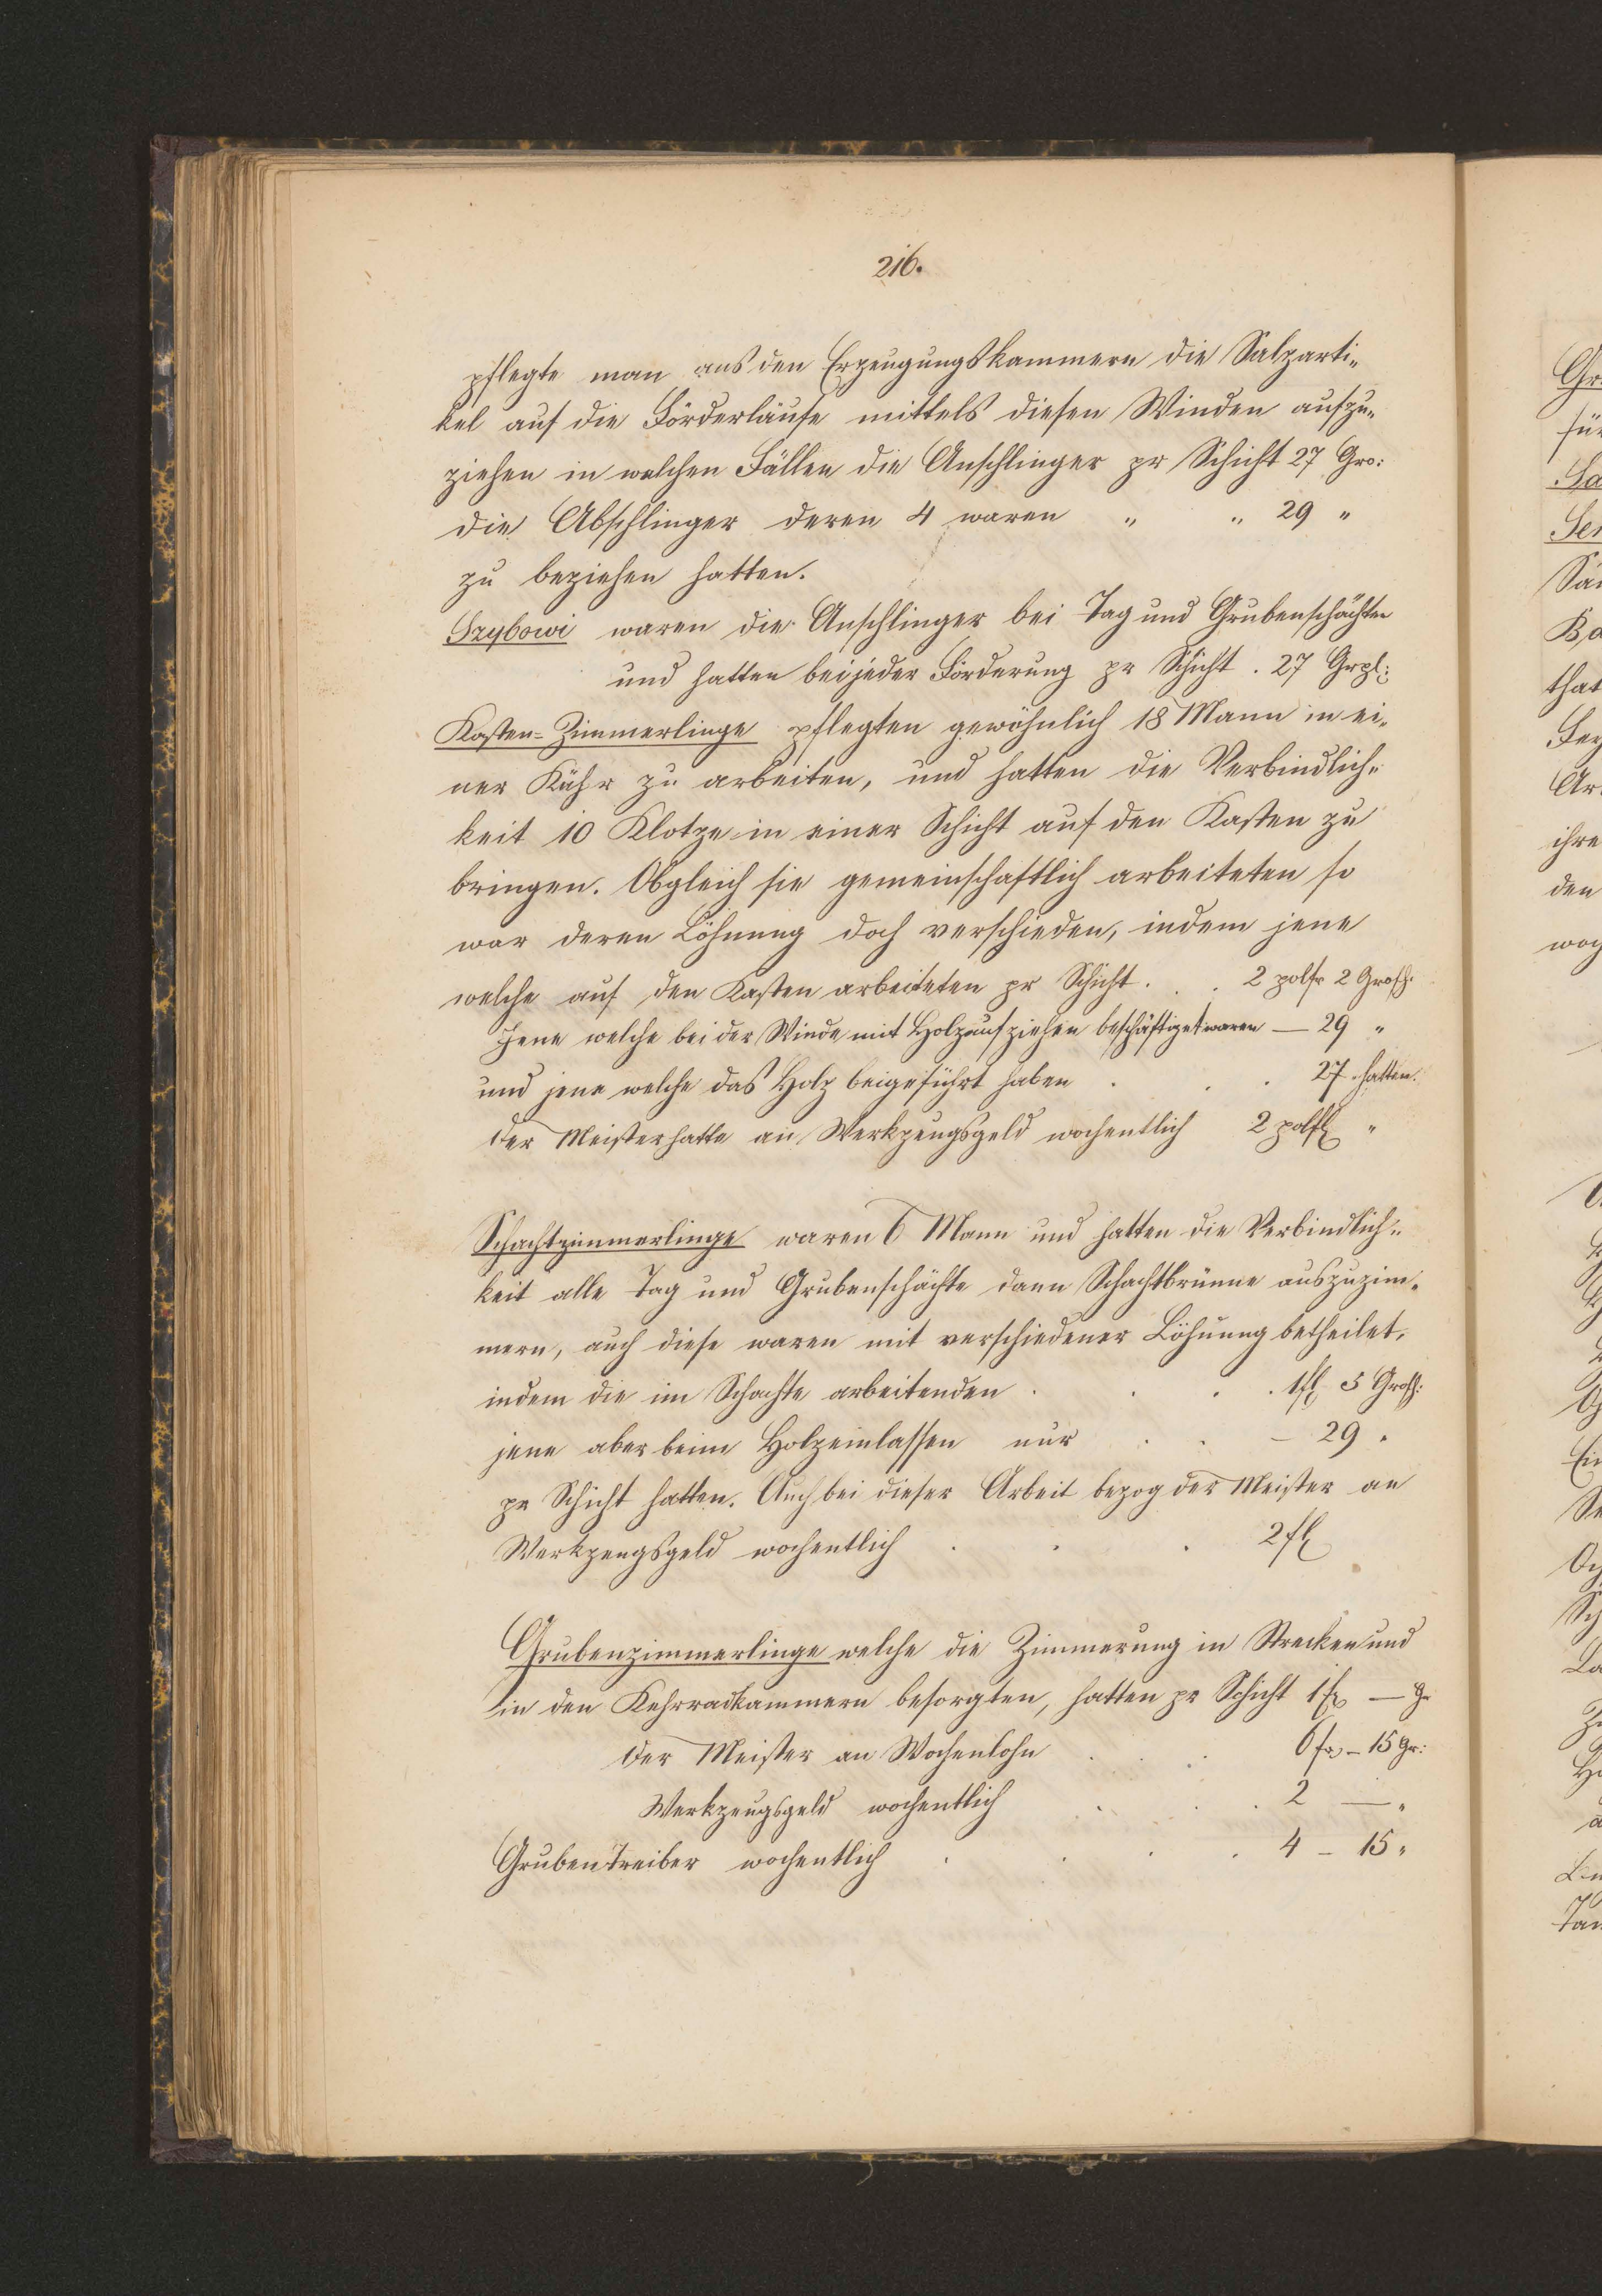 216.
pflegte man aus den Erzeugungskammern die Salzparti-
kel auf die Förderläufe mittels diesen Winden aufzu-
ziehen in welchen Fällen die Anschlinger pr Schicht 27 Gro:
die Abschlinger deren 4 waren " " 29 "
zu beziehen hatten.
Szybowi waren die Anschlinger bei Tag und Grubenschächten
und hatten bei jeder Förderung pr Schicht . 27 Grpl:
Kasten-Zimmerlinge pflegten gewöhnlich 18 Mann in ei-
ner Kühr zu arbeiten, und hatten die Verbindlich-
keit 10 Klotze in einer Schicht auf den Kasten zu
bringen. Obgleich sie gemeinschaftlich arbeiteten so
war deren Löhnung doch verschieden, indem jene
welche auf den Kasten arbeiteten pr Schicht . . 2 polfr 2 Grosch:
Jene welche bei der Winde mit Holzaufziehen beschäftiget waren — 29 "
und jene welche das Holz beigeführt haben . . . 27 hatten.
Der Meister hatte an Werkzeugsgeld wochentlich 2 polfl "
Schachtzimmerlinge waren 6 Mann und hatten die Verbindlich-
keit alle Tag und Grubenschächte dann Schachtbrünne auszuzim-
mern, auch diese waren mit verschiedener Löhnung betheilet,
indem die im Schachte arbeitenden . . . . 1 fl 5 Grosch:
jene aber beim Holzeinlassen nur . . — 29 "
pr Schicht hatten. Auch bei dieser Arbeit bezog der Meister an
Werkzeugsgeld wochentlich . . . 2 fl
Grubenzimmerlinge welche die Zimmerung in Strecken und
in den Kehrradkammern besorgten, hatten pr Schicht 1 fr — Gr
Der Meister an Wochenlohn . . 6 fr - 15 Gr:
Werkzeugsgeld wochentlich . . . 2 — "
Gruben Treiber wochentlich . . . . 4 - 15 "